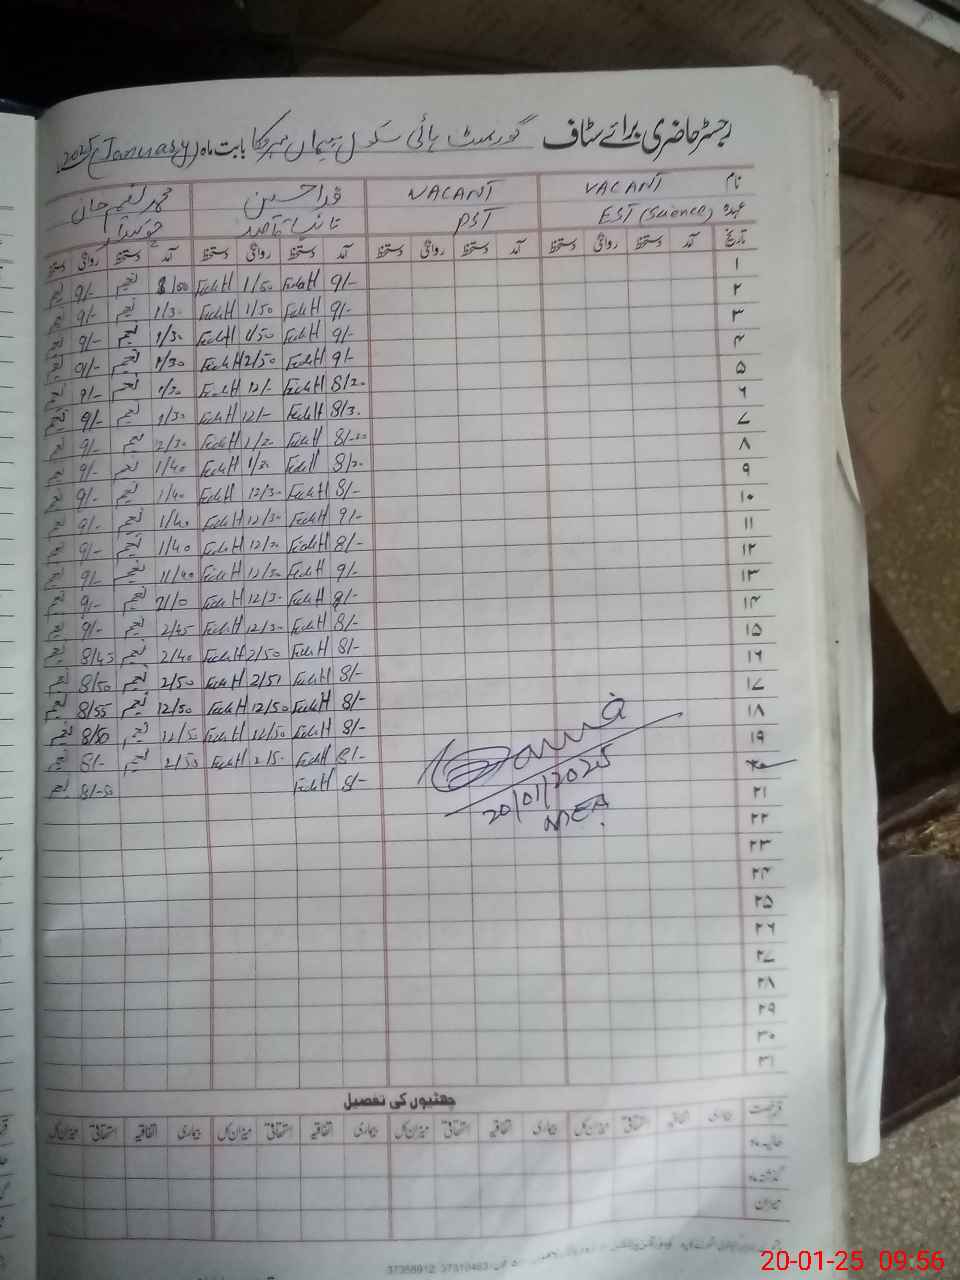 رجسٹر حاضری برائے سٹاف گورنمنٹ ہائی سکول بابت ماہ (January) 2025
نام VACANT VACANT فدا حسین محمد نعیم خان
عہدہ EST (Science) PST نائب قاصد چوکیدار
تاریخ آمد دستخط روانگی دستخط آمد دستخط روانگی دستخط آمد دستخط روانگی دستخط آمد دستخط روانگی دستخط
۱ 9/- FidaH 1/50 FidaH 8/00 نعیم 9/- نعیم
۲ 9/- FidaH 1/50 FidaH 1/30 نعیم 9/- نعیم
۳ 9/- FidaH 1/50 FidaH 1/30 نعیم 9/- نعیم
۴ 9/- FidaH 2/50 FidaH 1/30 نعیم 9/- نعیم
۵ 8/20 FidaH 12/- FidaH 1/30 نعیم 9/- نعیم
۶ 8/30 FidaH 12/- FidaH 1/30 نعیم 9/- نعیم
۷ FidaH 1/20 FidaH 2/30 نعیم 9/- نعیم
۸ 8/20 FidaH 1/20 FidaH 1/40 نعیم 9/- نعیم
۹ 8/- FidaH 12/30 FidaH 1/40 نعیم 9/- نعیم
۱۰ 9/- FidaH 12/30 FidaH 1/40 نعیم 9/- نعیم
۱۱ 8/- FidaH 12/30 FidaH 1/40 نعیم 9/- نعیم
۱۲ 9/- FidaH 12/30 FidaH 11/40 نعیم 9/- نعیم
۱۳ 8/- FidaH 12/30 FidaH نعیم 9/- نعیم
۱۴ 8/- FidaH 12/30 FidaH 2/45 نعیم 9/- نعیم
۱۵ 8/- FidaH 2/50 FidaH 2/40 نعیم 8/45 نعیم
۱۶ 8/- FidaH 2/51 FidaH 2/50 نعیم 8/50 نعیم
۱۷ 8/- FidaH 12/50 FidaH 12/50 نعیم 8/55 نعیم
۱۸ 8/- FidaH 12/50 FidaH 12/50 نعیم 8/50 نعیم
۱۹ 8/- FidaH 2/50 FidaH 2/50 نعیم 8/- نعیم
۲۰ 8/- FidaH 8/50 نعیم
20/01/2025
MEA
۲۱
۲۲
۲۳
۲۴
۲۵
۲۶
۲۷
۲۸
۲۹
۳۰
۳۱
چھٹیوں کی تفصیل
رخصت بیماری اتفاقیہ استحقاقی میزان کل بیماری اتفاقیہ استحقاقی میزان کل بیماری اتفاقیہ استحقاقی میزان کل بیماری اتفاقیہ استحقاقی میزان کل
حالیہ ماہ
گذشتہ ماہ
میزان
20-01-25 09:56